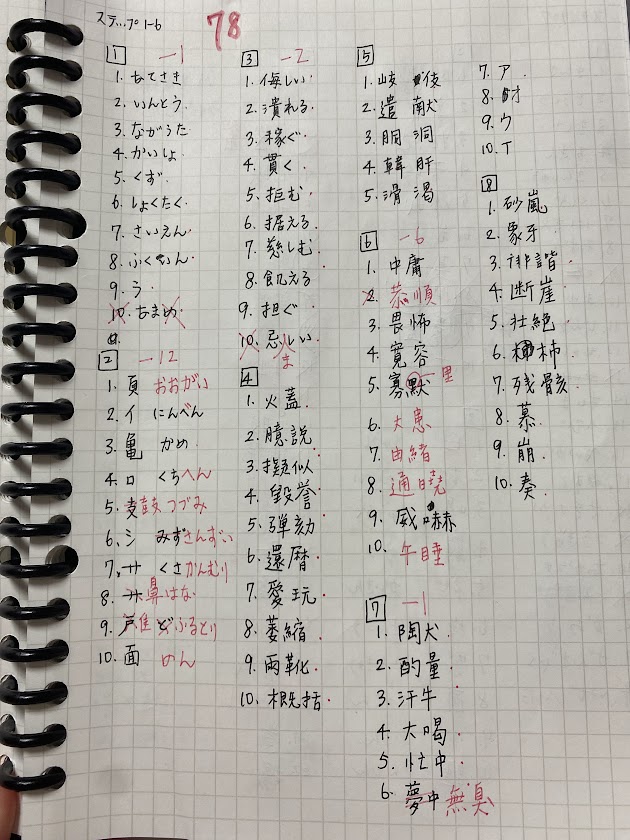 ステップ1-6
78
1 -1
1. あてさき
2. いんとう
3. ながうた
4. かいしょ
5. くず
6. しょくたく
7. さいえん
8.
9. う
10. あまめ
2 -12
1. 頁 おおがい
2. イ にんべん
3. 亀 かめ
4. 口 くちへん
5. 鼓 つづみ
6. シ みずさんずい
7. サ くさかんむり
8. 鼻 はな
9. 戸 隹 ど ふるとり
10. 面 めん
3 -2
1. 侮しい
2. 潰れる
3. 稼ぐ
4. 貫く
5. 拒む
6. 据える
7. 慈しむ
8. 飢える
9. 担ぐ
10. 忌しい ま
4
1. 火蓋
2. 臆説
3. 擬似
4. 毀誉
5. 弾劾
6. 還暦
7. 愛玩
8. 萎縮
9. 両靴
10. 概括
5
1. 岐
2. 遣 献
3. 胴 洞
4. 韓 肝
5. 滑 渇
6 -6
1. 中庸
2. 恭順
3. 畏怖
4. 寛容
5. 寡黙 里
6. 大患
7. 由緒
8. 通暁
9. 威嚇
10. 午睡
7 -1
1. 陶犬
2. 酌量
3. 汗牛
4. 大喝
5. 忙中
6. 夢中 無臭
7. ア
8. オ
9. ウ
10. エ
8
1. 砂嵐
2. 象牙
3. 俳諧
4. 断崖
5. 壮絶
6. 柿
7. 残骸
8. 慕
9. 崩
10. 奏